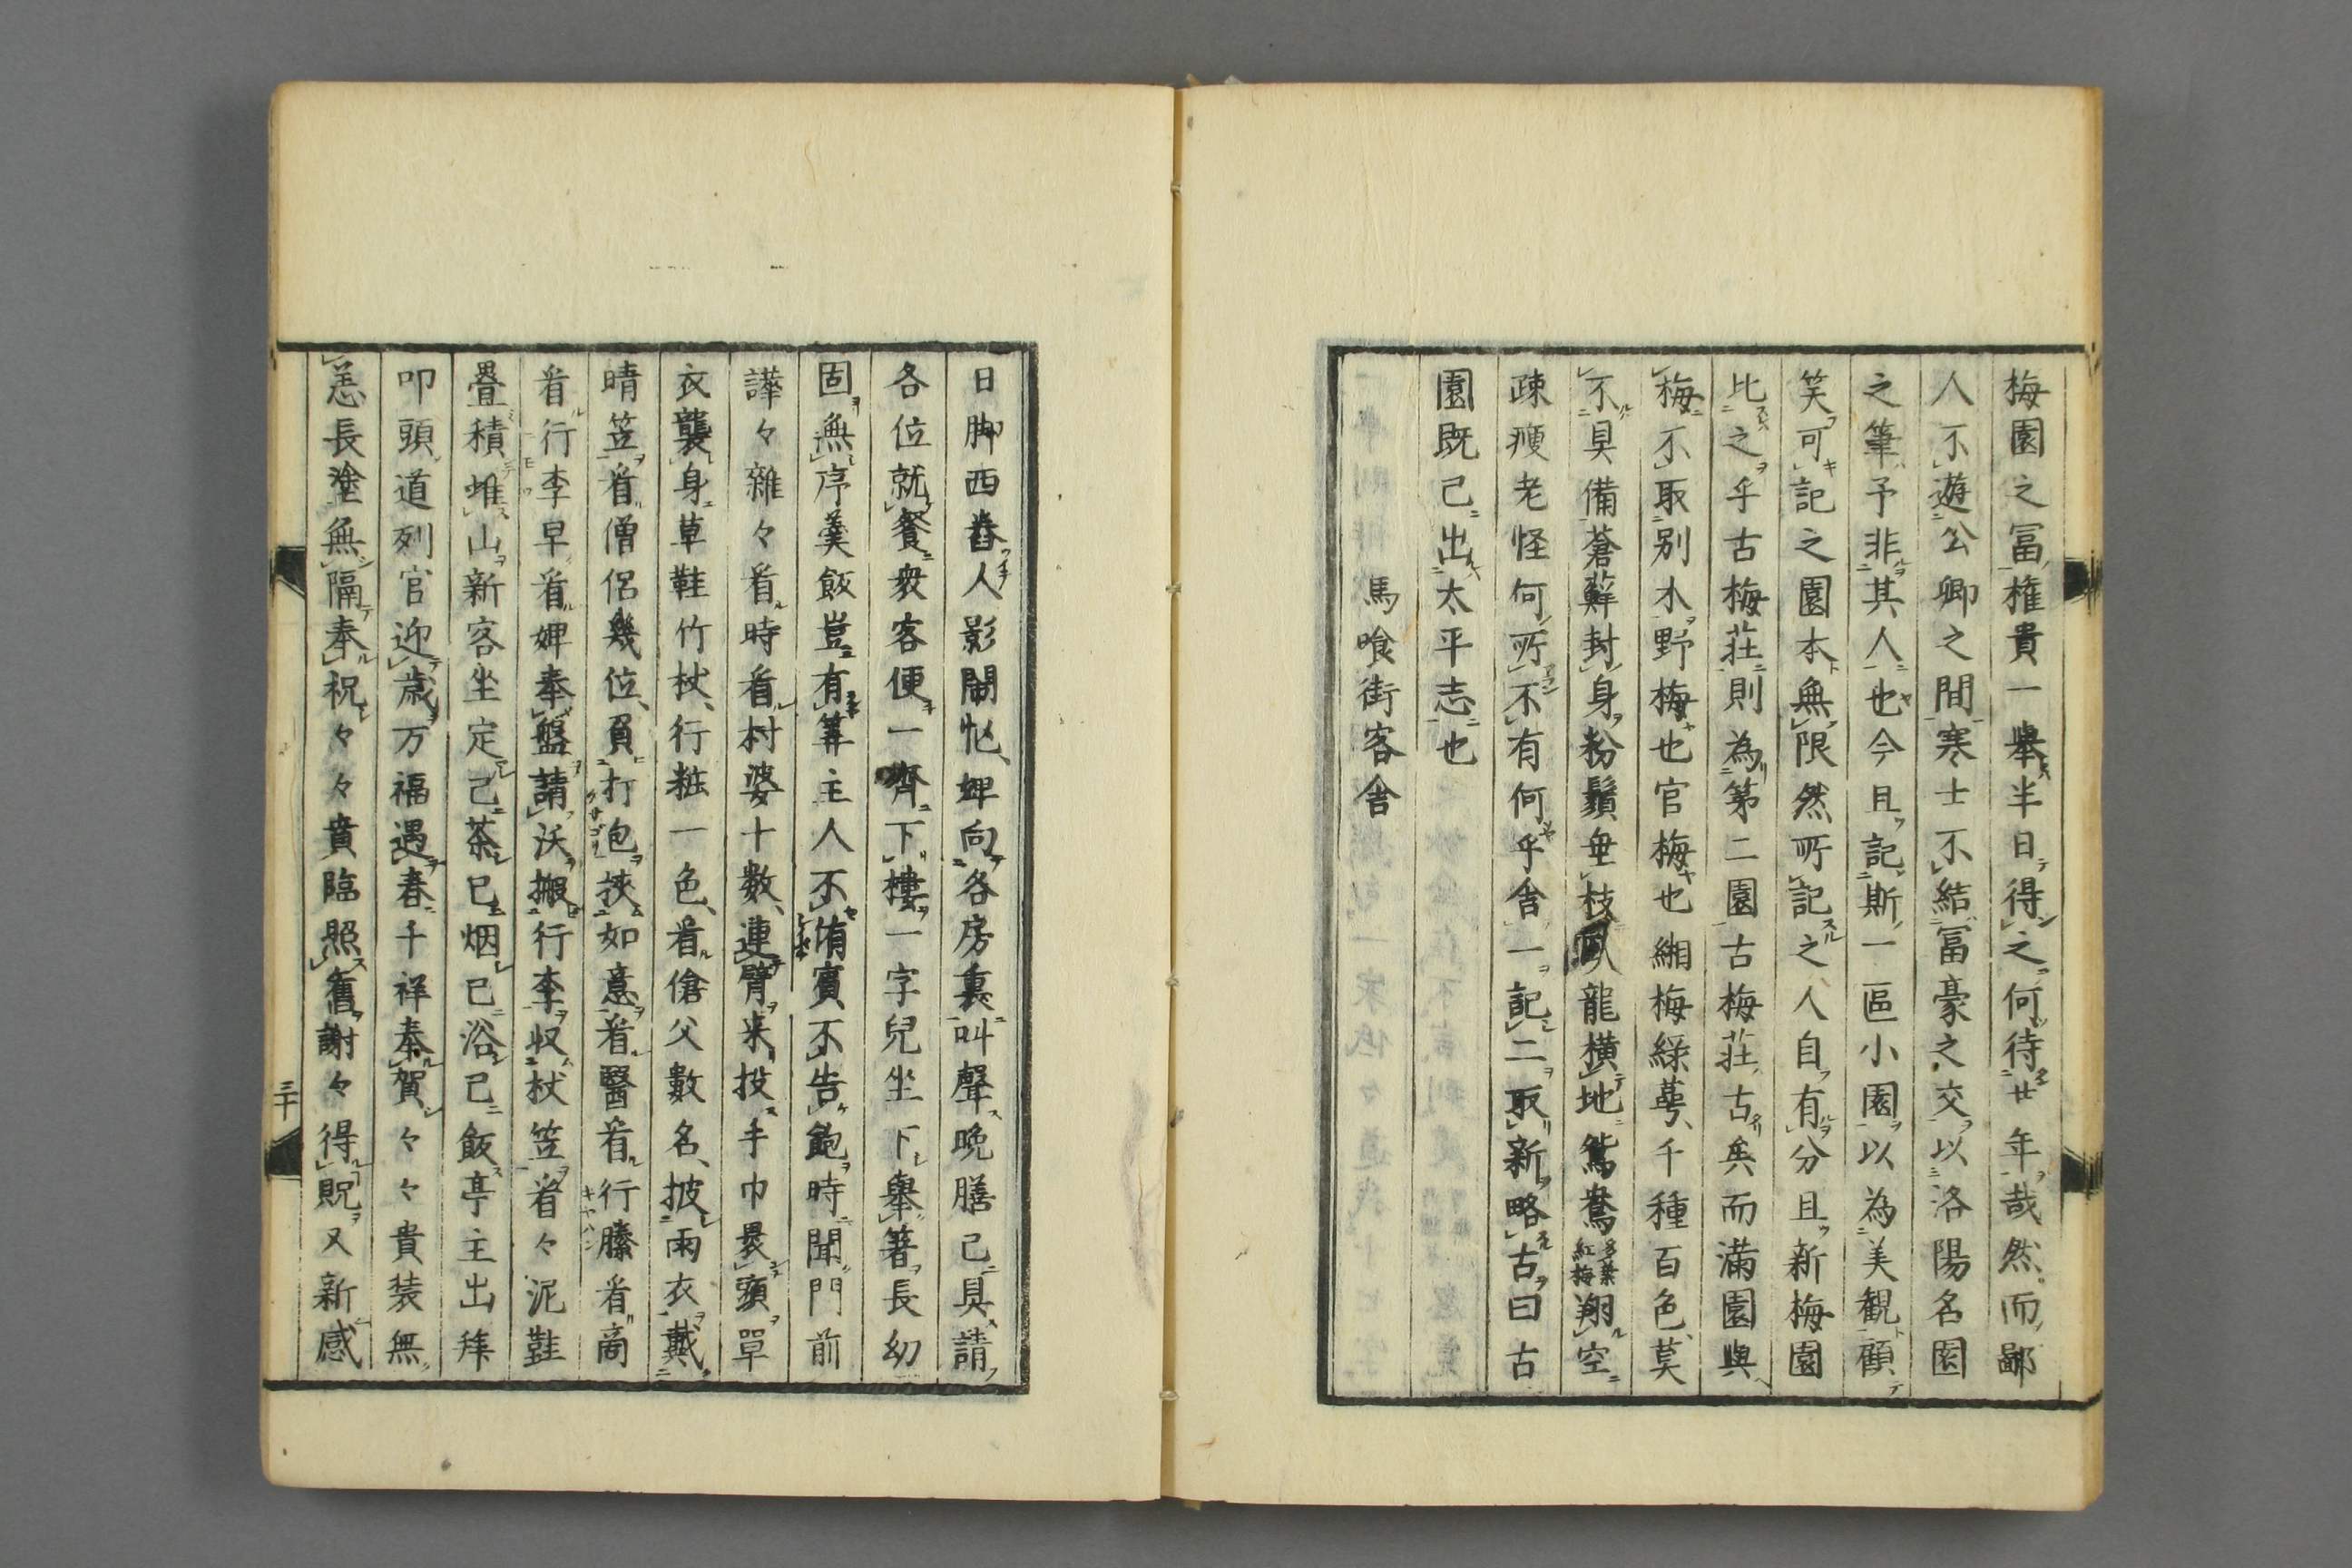 梅園之冨権貴一擧半日得之何待廿年哉然而鄙
人不遊公卿之間寒士不結冨豪之交以洛陽名園
之筆予非其人也今且記斯一區小園以為美観顧
笑可記之園本無限然所記之人自有分且新梅園
比之乎古梅莊則為第二園古梅莊古矣而滿園與
梅不取別木野梅也官梅也緗梅綠萼千種百色莫
不具備蒼蘚封身粉鬚垂枝臥龍横地鴛鴦多葉紅梅翔空
疎瘦老怪何所不有何乎舍一記二取新略古曰古
園既已出太平志也
馬喰街客舍
日脚西舂人影閙怱婢向各房裏叫聲晩膳已具請
各位就餐衆客便一齊下樓一字兒坐下擧箸長幼
固無序羹飯豈有算主人不侑賓不告飽時聞門前
譁々雜々看時看村婆十數連臂来投手巾裹頭單
衣襲身草鞋竹杖行粧一色看傖父數名披雨衣戴
晴笠看僧侶幾位負打包挾如意看醫看行縢看商
看行李早看婢奉盤請沃搬行李収杖笠看々泥鞋
疊積堆山新客坐定已茶已烟已浴已飯亭主出拜
叩頭道列官迎歳万福遇春千祥奉賀々々貴装無
恙長塗無隔奉祝々々賁臨照舊謝々得貺又新感
三十